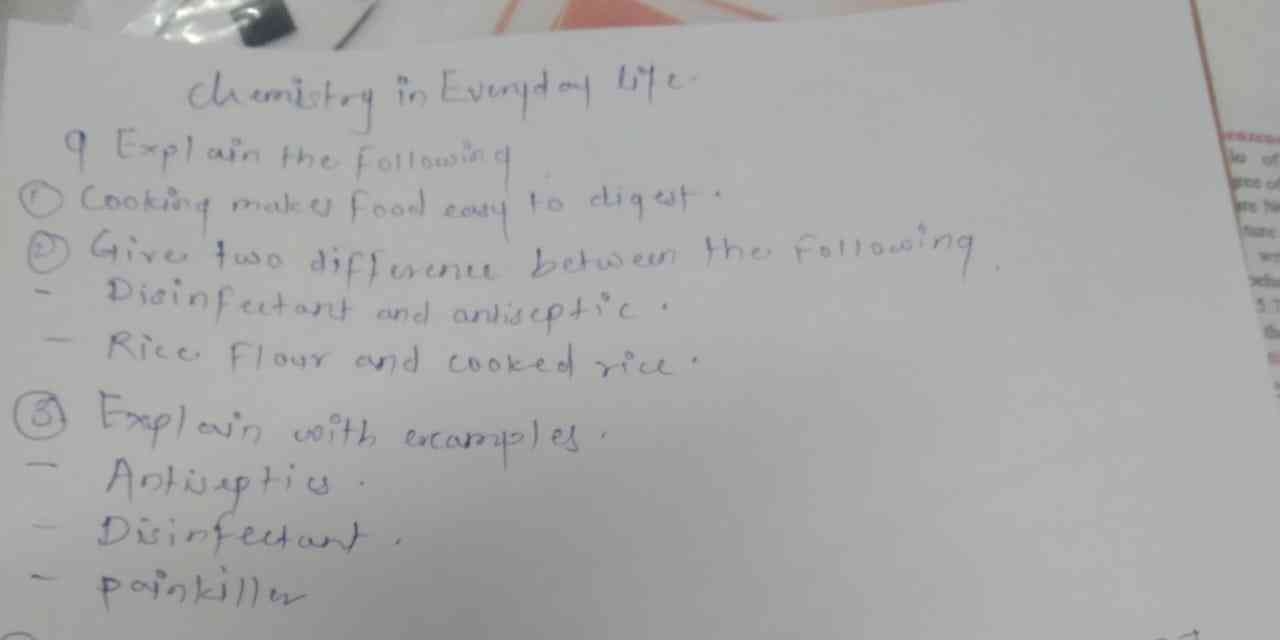 Chemistry in Everyday life.
q Explain the following
① Cooking makes food easy to digest.
② Give two difference between the following.
- Disinfectant and antiseptic.
- Rice Flour and cooked rice.
③ Explain with examples.
- Antiseptics.
- Disinfectant.
- painkiller